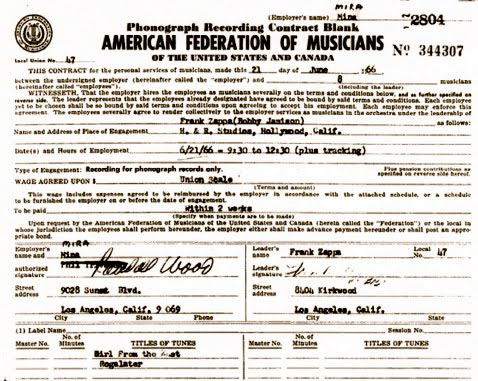 MIRA
(Employer's name) Mina
2804
Phonograph Recording Contract Blank
AMERICAN FEDERATION OF MUSICIANS
OF THE UNITED STATES AND CANADA
Nº 344307
Local Union No. 47
THIS CONTRACT for the personal services of musicians, made this 21 day of June, 66
between the undersigned employer (hereinafter called the "employer") and 8 musicians
(hereinafter called "employees"). (including the leader)
WITNESSETH, That the employer hires the employees as musicians severally on the terms and conditions below, and as further specified on
reverse side. The leader represents that the employees already designated have agreed to be bound by said terms and conditions. Each employee
yet to be chosen shall be so bound by said terms and conditions upon agreeing to accept his employment. Each employee may enforce this
agreement. The employees severally agree to render collectively to the employer services as musicians in the orchestra under the leadership of
Frank Zappa(Bobby Jamison) as follows:
Name and Address of Place of Engagement H. & R. Studios, Hollywood, Calif.
Date(s) and Hours of Employment 6/21/66 - 9:30 to 12:30 (plus tracking)
Type of Engagement: Recording for phonograph records only.
Plus pension contributions as
specified on reverse side hereof.
WAGE AGREED UPON $ Union Scale
(Terms and amount)
This wage includes expenses agreed to be reimbursed by the employer in accordance with the attached schedule, or a schedule
to be furnished the employer on or before the date of engagement.
To be paid within 2 weeks
(Specify when payments are to be made)
Upon request by the American Federation of Musicians of the United States and Canada (herein called the "Federation") or the local in
whose jurisdiction the employees shall perform hereunder, the employer either shall make advance payment hereunder or shall post an appropriate bond.
MIRA
Employer's name and authorized signature Mina
Randall Wood
Leader's name Frank Zappa Local No. 47
Leader's signature
Street address 9028 Sunset Blvd.
Street address 8404 Kirkwood
Los Angeles, Calif. 9 069
City State Phone
Los Angeles, Calif.
City State
(1) Label Name Session No.
Master No. No. of Minutes TITLES OF TUNES Master No. No. of Minutes TITLES OF TUNES
Girl From the East